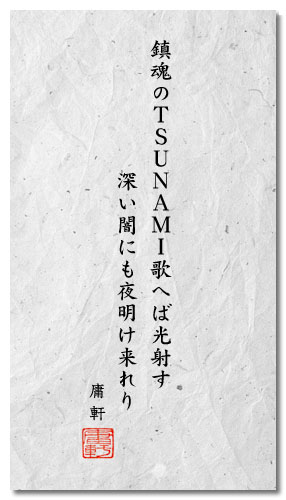 鎮魂のTSUNAMI歌へば光射す
深い闇にも夜明け来れり
庸軒
庸軒